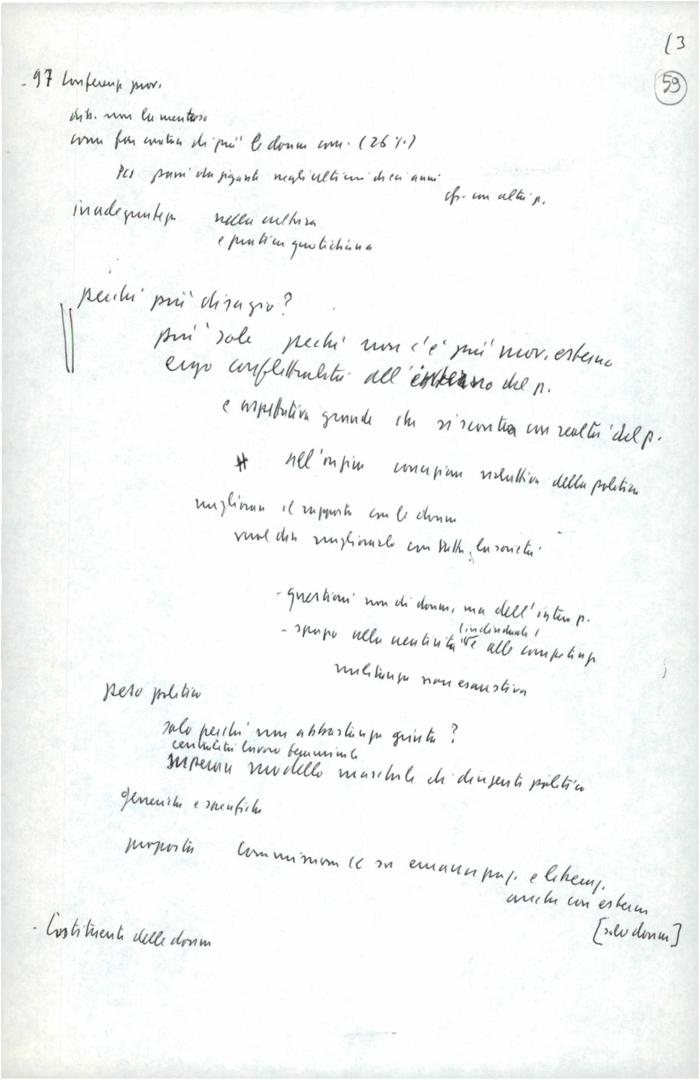 (3
59
- 97 Conferenza prov.
dib. non lamentoso
come far contare di più le donne com. (26%)
PCI passi da giganti negli ultimi dieci anni
cfr. con altri p.
inadeguatezza nella cultura
e pratica quotidiana
perché più disagio?
più sole perché non c'è più mov. esterno
ergo conflittualità all'interno del p.
e aspettativa grande che si scontra con realtà del p.
# all'origine concezione riduttiva della politica
migliorare il rapporto con le donne
vuol dire migliorarlo con tutta la società
- questioni non di donne, ma dell'intero p.
- spazio alla creatività e alle competenze
(individuale)
militanza non esaustiva
peso politico
solo perché non abbastanza ?
centralità lavoro femminile
superare modello maschile di dirigente politico
generiche e specifiche
proposta Commissione CC su emancipaz. e liberaz.
anche con esterne
[solo donne]
- Costituente delle donne